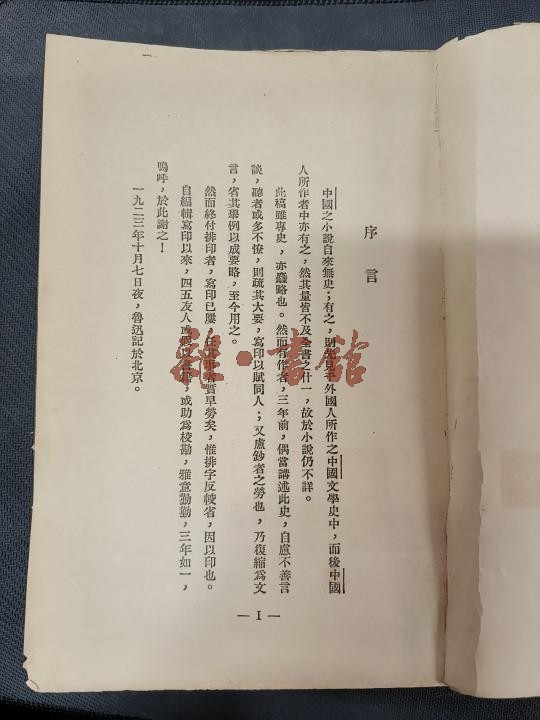 序言
中國之小說自來無史;有之,則先見于外國人所作之中國文學史中,而後中國
人所作者中亦有之,然其量皆不及全書之什一,故於小說仍不詳。
此稿雖專史,亦麤略也。然而有作者,三年前,偶當講述此史,自慮不善言
談,聽者或多不憭,則疏其大要,寫印以賦同人;又慮鈔者之勞也,乃復縮爲文
言,省其舉例以成要略,至今用之。
然而終付排印者,寫印已屢,任其事者實早勞矣,惟排字反較省,因以印也。
自編輯寫印以來,四五友人或假以書籍,或助爲校勘,雅意勤勤,三年如一,
嗚呼,於此謝之!
一九二三年十月七日夜,魯迅記於北京。
— I —
·書館